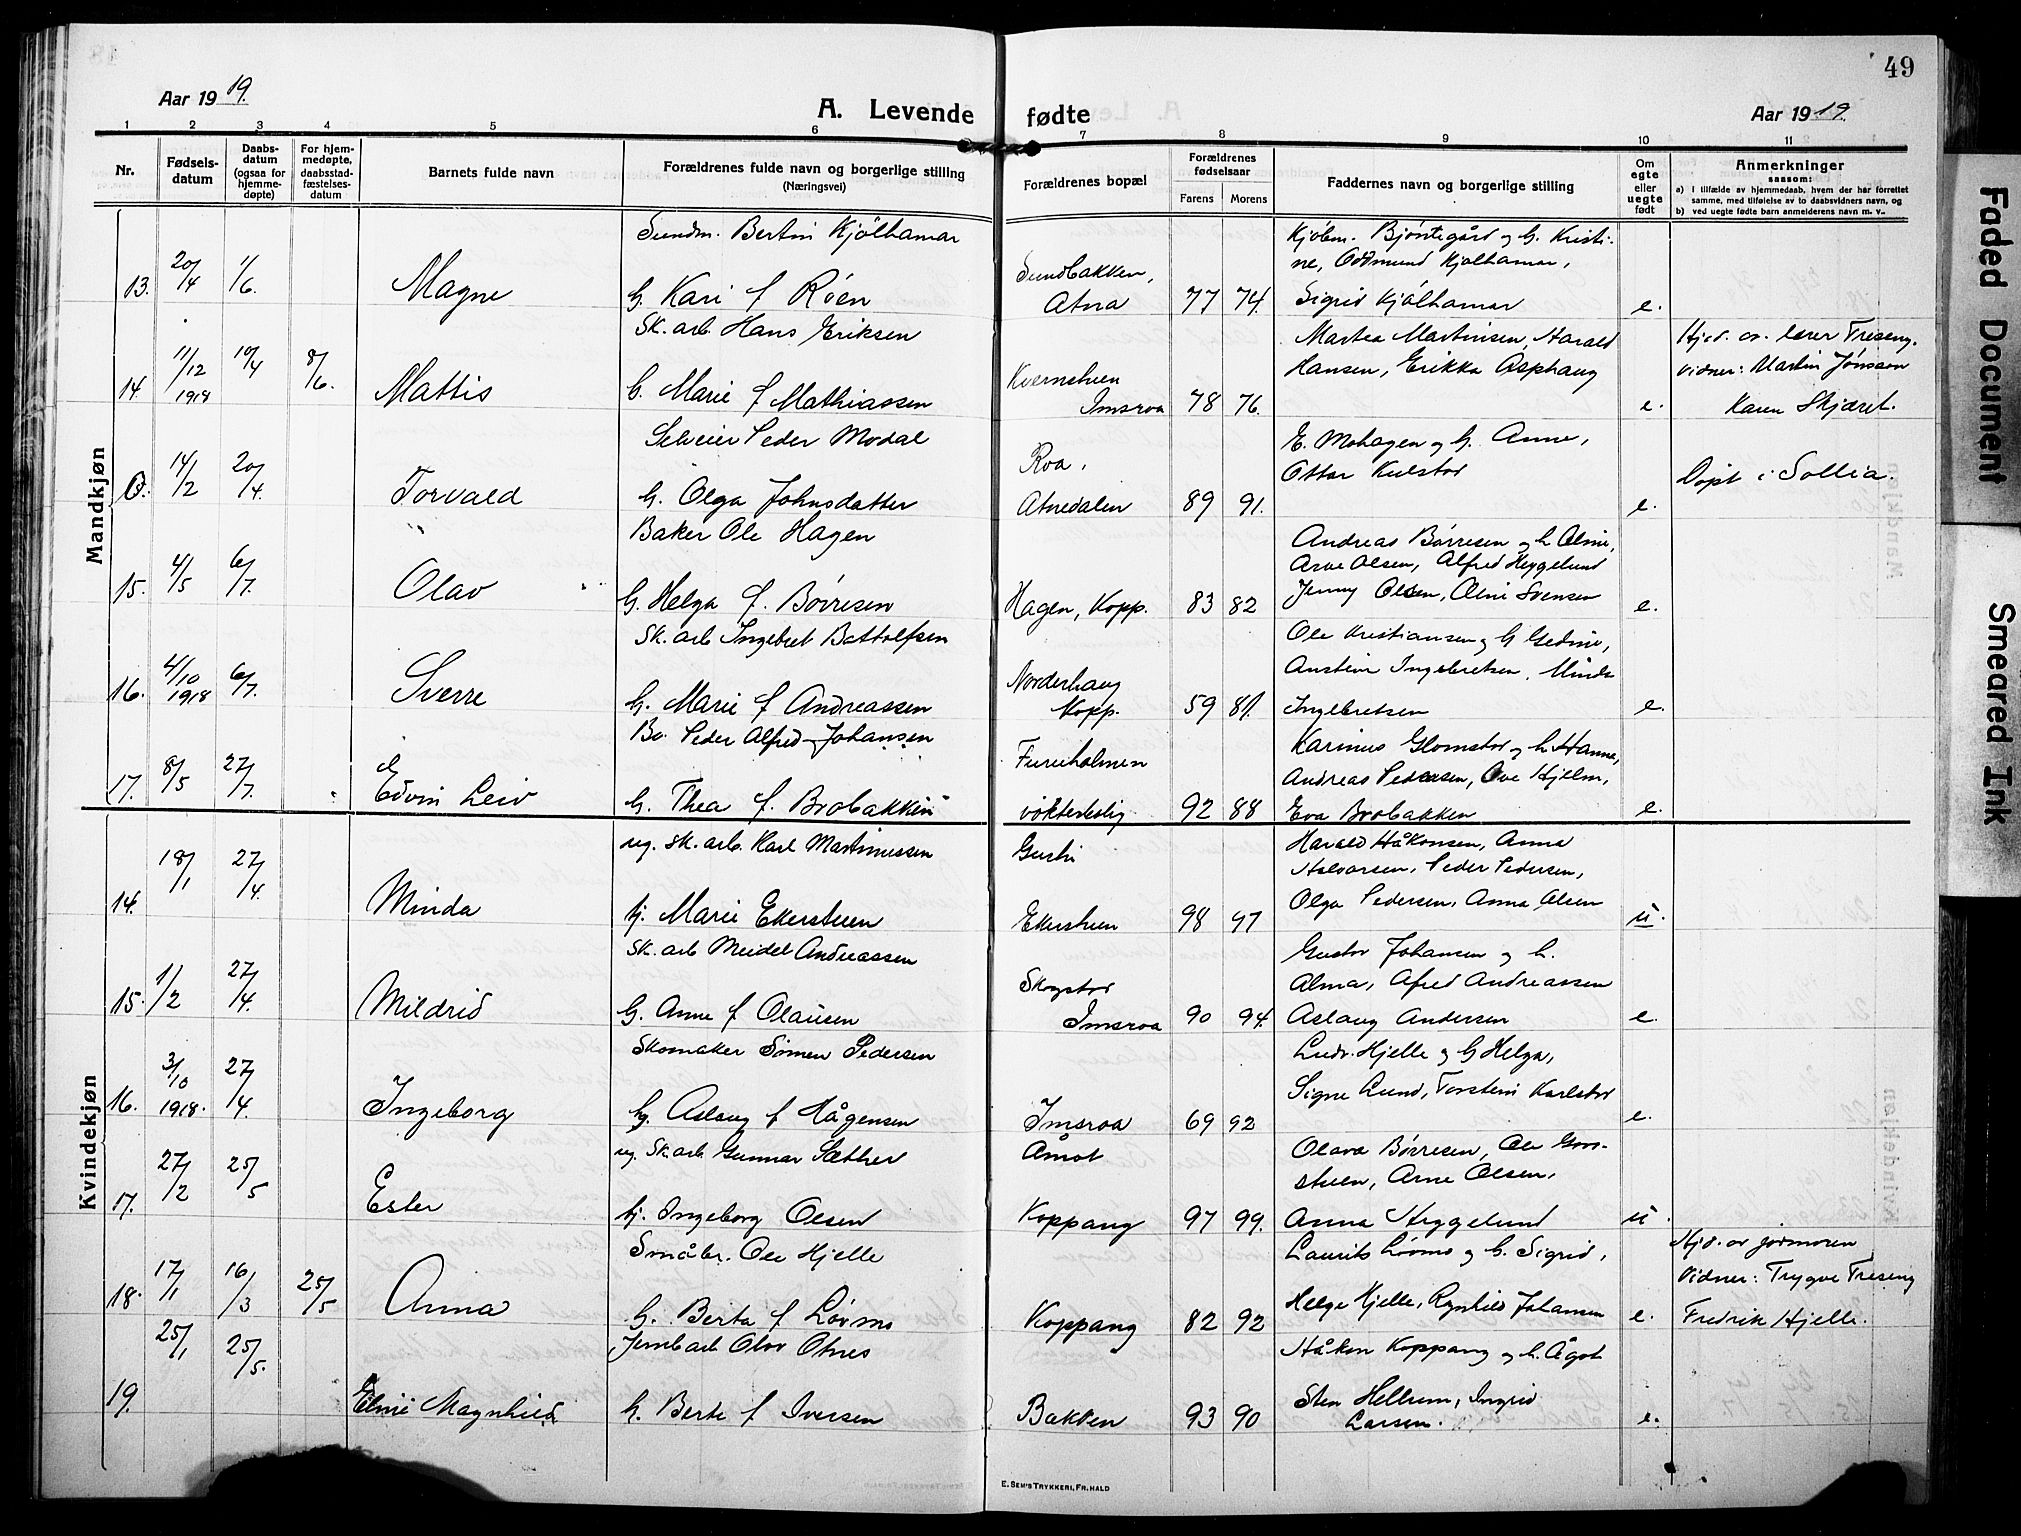 49
Aar 1919.
A. Levende fødte
Aar 1919.
1 2 3 4 5 6 7 8 9 10 11
Nr.
Fødsels-
datum
Daabs-
datum
(ogsaa for
hjemme-
døpte)
For hjem-
medøpte,
daabsstad-
fæstelses-
datum
Barnets fulde navn
Forældrenes fulde navn og borgerlige stilling
(Næringsvei)
Forældrenes bopæl
Forældrenes
fødselsaar
Farens Morens
Faddernes navn og borgerlige stilling
Om
egte
eller
uegte
født
Anmerkninger
saasom:
a) i tilfælde av hjemmedaab, hvem der har forrettet
samme, med tilføielse av to daabsvidners navn, og
b) ved uegte fødte barn anmelderens navn m. v..
Mandkjøn
13. 20/4 1/6. Magne
Sundm. Bertin Kjølhamar
G. Kari f Røen
Sundbakken,
Atna 77 74.
Kjøbm. Bjøntegård og G. Kristi-
ne, Oddmund Kjølhamar,
Sigrid Kjølhamar e.
14. 11/12 1918 10/4 8/6. Mattis
Sk. arb. Hans Eriksen
G. Marie f Mathiassen
Kvernstuen
Imsroa 78 76.
Martea Martinsen, Harald
Hansen, Erikka Asphaug e.
Hjd. av lærer Treseng.
Vidner: Martin Jønsson
Karen Skjæret.
0. 14/2 20/4. Torvald
Selveier Peder Modal
G. Olga Johnsdatter
Roa,
Atnedalen 89 91.
E. Mohagen og G. Anne,
Ottar Kulstad e.
Døpt i Sollia.
15. 4/5 6/7. Olav
Baker Ole Hagen
G. Helga f. Børresen
Hagen, Kopp. 83 82
Andreas Børresen og G. Oline,
Arve Olsen, Alfred Heggelund
Jenny Olsen, Oline Svensen e.
16. 4/10 1918 6/7. Sverre
Sk. arb Ingebret Battolfsen
G. Marie f Andreassen
Norderhaug
Kopp. 59 81.
Ole Kristiansen og G Gedine,
Austein Ingebretsen, Minda
Ingebretsen e.
17. 8/5 27/7. Edvin Leiv
Bv. Peder Alfred Johansen
G. Thea f. Brobakken
Furuholmen
vokterbolig 92 88
Karinus Glomstad og G. Hanna,
Andreas Pedersen, Ove Hjelm,
Eva Brobakken e.
Kvindekjøn
14. 18/1 27/4. Minda
ug. sk. arb. Karl Martinussen
tj. Marie Ekerstuen
Gusti
Ekerstuen 98 97
Harald Håkonsen, Anna
Halvorsen, Peder Pedersen,
Olga Pedersen, Anna Olsen u.
15. 1/2 27/4. Mildrid
Sk. arb Meidel Andreassen
G. Anne f Olausen
Skogstad
Imsroa 90 94.
Gustav Johansen og G.
Alma, Afred Andreassen
Aslaug Andersen e.
16. 3/10 1918. 27/4. Ingeborg
Skomaker Simen Pedersen
G. Aslaug f Hågensen
Imsroa 69 92
Ludv. Hjelle og G Helga,
Signe Lund, Torstein Karlstad e.
17. 27/2 25/5 Ester
ug. Sk. arb. Gunnar Sæther
tj. Ingeborg Olsen
Åmot
Koppang 97 99.
Olava Børresen, Ole
stuen, Arne Olsen,
Anna Heggelund u.
18. 17/1 16/3 25/5 Anna
Småbr. Ole Hjelle
G. Berta f Løvmo
Koppang 82 92
Laurits Løvmo og G. Sigrid,
Helge Hjelle, Rønhild Johansen e.
Hjd. av jormoren
Vidner: Trygve Treseng
Fredrik Hjelle.
19. 25/1 25/5. Eline Magnhild
Jernb. arb Olav Otnes
G. Berte f Iversen
Bakken 93 90
Håken Koppang og G. Ågot
Sten Hellum, Ingrid
Larsen. e.
E. SEM'S TRYKKERI, FR. HALD
Faded Document
Smeared Ink